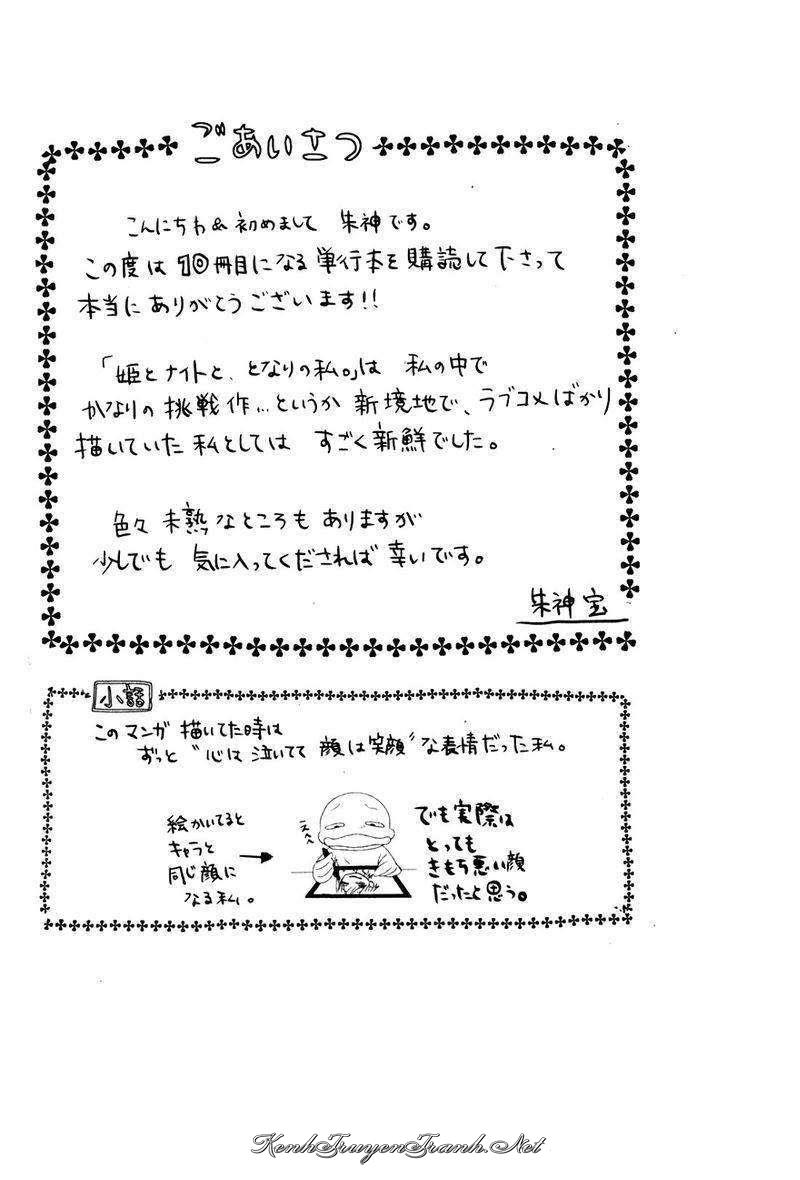 ごあいさつ
こんにちわ&初めまして 朱神です。
この度は10冊目になる単行本を購読して下さって
本当にありがとうございます!!
「姫とナイトと、となりの私。」は 私の中で
かなりの挑戦作…というか 新境地で、ラブコメばかり
描いていた私としては すごく新鮮でした。
色々 未熟なところも ありますが
少しでも 気に入ってくだされば 幸いです。
朱神 宝
小話
このマンガ 描いてた時は
ずっと“心は 泣いてて 顔は笑顔”な表情だった私。
絵かいてると
キャラと
同じ顔に
なる私。
→
えへへ
でも実際は
とっても
きもち悪い顔
だったと思う。
KenhTruyenTranh.Net